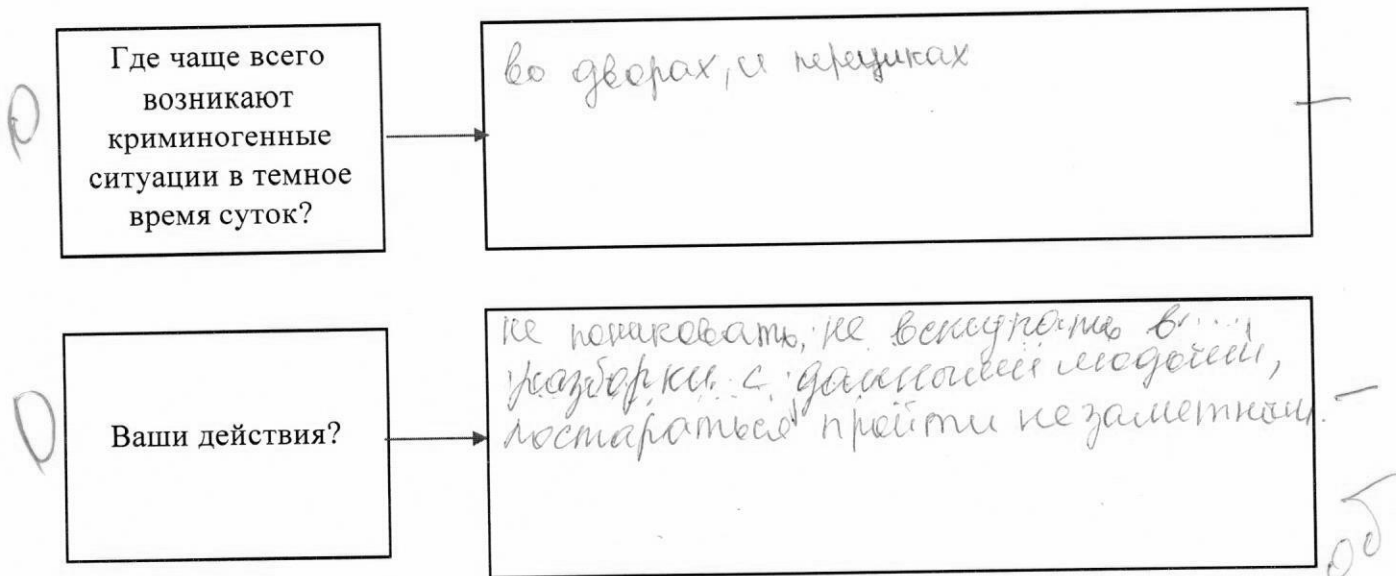 Где чаще всего
возникают
криминогенные
ситуации в темное
время суток?
во дворах, и переулках
0
Ваши действия?
не паниковать, не вступать в
разборки с данными людьми,
постараться пройти незаметным.
0
0б